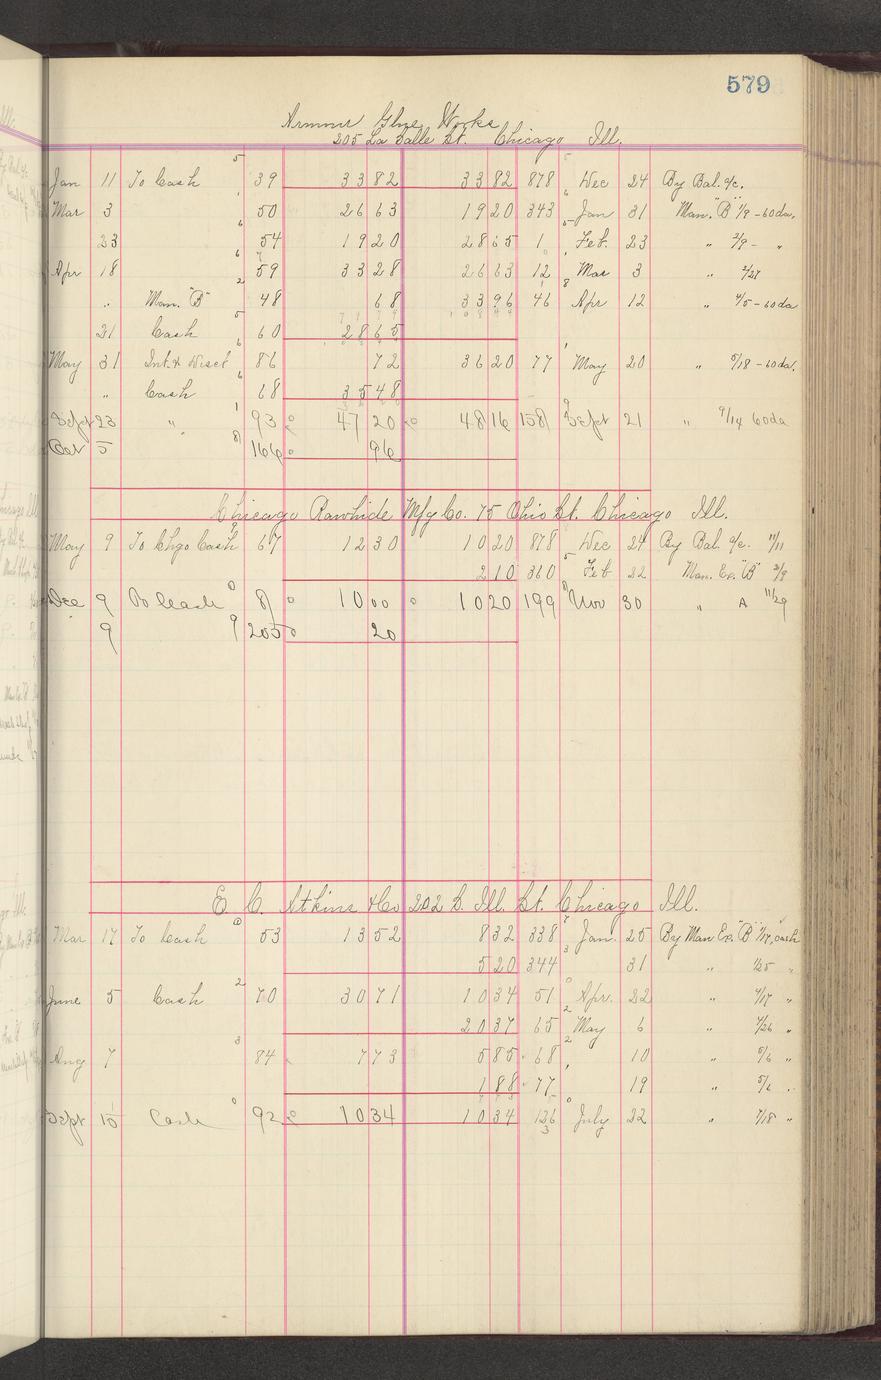 579
Armour Glue Works
205 La Salle St. Chicago Ill.
Jan 11 To Cash 5 39 33 82 33 82 878 Dec 24 By Bal. a/c.
Mar 3 50 26 63 19 20 343 6 Jan 31 Man. "B" 1/9 - 60 da.
23 6 54 19 20 28 65 1 5 Feb. 23 " 2/9 - "
Apr 18 6 59 33 28 26 63 12 Mar 3 " 2/27
" Man. "B" 2 48 68 33 96 46 8 Apr 12 " 4/5 - 60 da
21 Cash 5 60 28 65
May 31 Int. & Disct 6 86 72 36 20 77 May 20 " 5/18 - 60 da.
" Cash 6 68 35 48
Sept 23 " 1 93 47 20 48 16 158 9 Sept 21 " 9/14 60 da
Oct 5 8 166 96
Chicago Rawhide Mfg Co. 75 Ohio St. Chicago Ill.
May 9 To Chgo Cash 9 67 12 30 10 20 878 Dec 24 By Bal. a/c. 11/11
2 10 360 5 Feb 22 Man. Ex. "B" 2/9
Dec 9 To Cash 0 8 10 00 10 20 199 8 Nov 30 " A 11/29
9 9 205 20
E. C. Atkins & Co 202 S. Ill. St. Chicago Ill.
Mar 17 To Cash 0 53 13 52 8 32 338 7 Jan. 25 By Man Ex. "B" 1/17, cash
5 20 344 3 31 " 1/25 "
June 5 Cash 2 70 30 71 10 34 51 0 Apr. 22 " 4/17 "
20 37 65 2 May 6 " 4/26 "
Aug 7 3 84 7 73 5 85 68 2 10 " 5/6 "
1 88 77 19 " 5/6 "
Sept 15 Cash 0 92 10 34 10 34 126 0 July 22 " 7/18 "
3